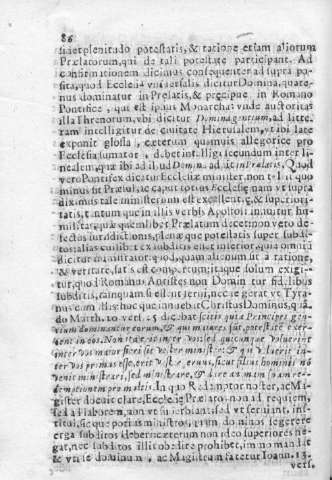 86
sit et plenitudo potestatis, & ratione etiam aliorum
Prælatorum, qui de tali potestate participant. Ad
confirmationem dicimus consequenter ad supra po-
sita, quod Ecclesia vniuersalis dicitur Domina, quate-
nus dominatur in Prelatis, & præcipue in Romano
Pontifice, qui est ipsius Monarcha: vnde authoritas
illa Threnorum, vbi dicitur Dominagentium, ad litte-
ram intelligitur de ciuitate Hierusalem, vt ibi late
exponit glossa, cæterum quamuis allegorice pro
Ecclesia sumatur, debet intelligi secundum inter li-
nealem, quæ ibi ad illud Domina addit in Prælatis. Quod
vero Pontifex dicatur Ecclesiæ minister non tollit quo
minus sit Præsul, ac caput totius Ecclesię nam vt supra
diximus tale ministerium est excellentię, & superiori-
tatis, tantum que in illis verbis Apostoli innuitur hu-
militas, qua quemlibet Prælatum decet non vero de-
fectus iurisdictionis, plenæque potestatis super subdi-
tos alias cuilibet ex subditis esset inferior, quia omnia
dicitur ministrator: quod, quam alienum sit a ratione,
& veritate, satis est compertum; itaque solum exigi-
tur, quod Romanus Antistes non Dominetur fidelibus
subditis, tamquam si essent serui, nec ie gerat vt Tyra-
nus cum illis; hoc quæ innuebit Christus Dominus, quā-
do Matth. 20. vers. 25 dicebat scitis quia Principes gen-
tium dominantur eorum, & qui maiores sūt, potestatē exer-
cent in eos. Non ita erit inter vos sed quicunque voluerit
inter vos maior fieri sit vester minister: & qui voluerit in-
ter vos primus esse, erit vester seruus, sicut filius hominis nō
venit ministrari, sed ministrare, & dare animam suam re-
demptionem pro multis. In quo Redemptor noster, ac Ma-
gister docuit clare, Ecclesię Prælatos non ad requiem,
sed ad laborem, non vt seruiantur, sed vt seruiant, insti-
tui, sicque potius ministros, quam dominos se gerere
erga subditos debere: cæterum non ideo superiores ne-
gat, nec subditos illis obedire prohibet, immo nam tū
& vt se dominum, ac Magistrum fatetur Ioann. 13.
vers.